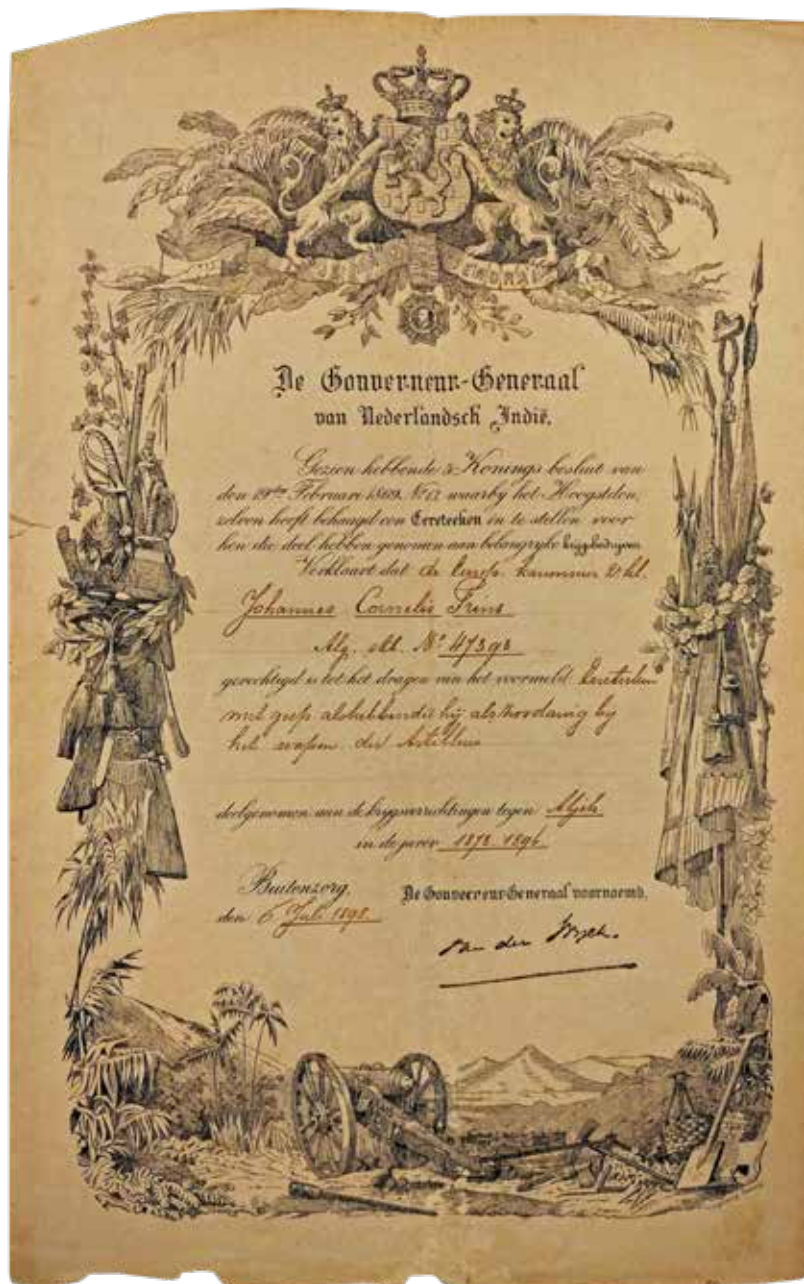 De Gouverneur-Generaal
van Nederlandsch Indië.
Gezien hebbende 's Konings besluit van
den 19den Februari 1869 No 12 waarby het Hoogstden,
zelven heeft behaagd een Eereteeken in te stellen voor
hen die deel hebben genomen aan belangryke krygsbedryven
Verklaart dat de Europ. kanonnier 2e kl.
Johannes Cornelis Frens
Alg. stb. No 47393
gerechtigd is tot het dragen van het voormeld Eereteeken
met gesp als hebbende hy als zoodanig by
het wapen der Artillerie
deelgenomen aan de krygsverrichtingen tegen Atjeh
in de jaren 1873-1896
Buitenzorg,
den 6 Juli 1898
De Gouverneur-Generaal voornoemd,
van der Wyck.